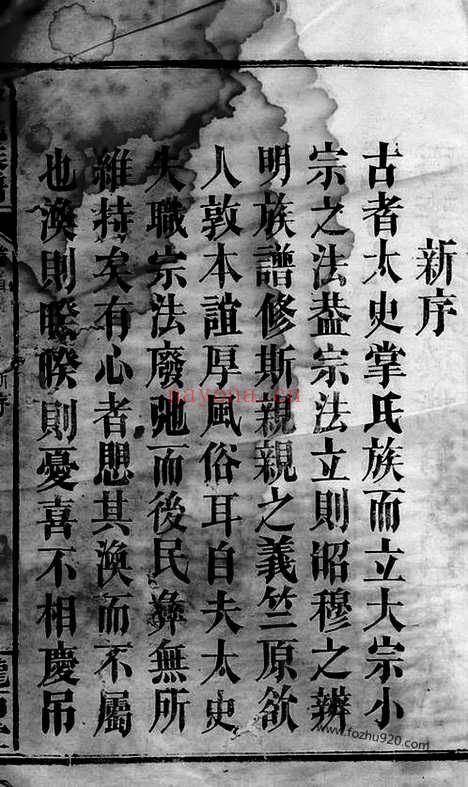 新序
古者太史掌氏族而立大宗小
宗之法葢宗法立則昭穆之辨
明族譜修斯親親之義竺原欲
人敦本誼厚風俗耳自夫太史
失職宗法廢弛而後民彝無所
維持矣有心者愳其渙而不屬
也渙則暌暌則憂喜不相慶吊
nayona.cn
www.fozhu920.com